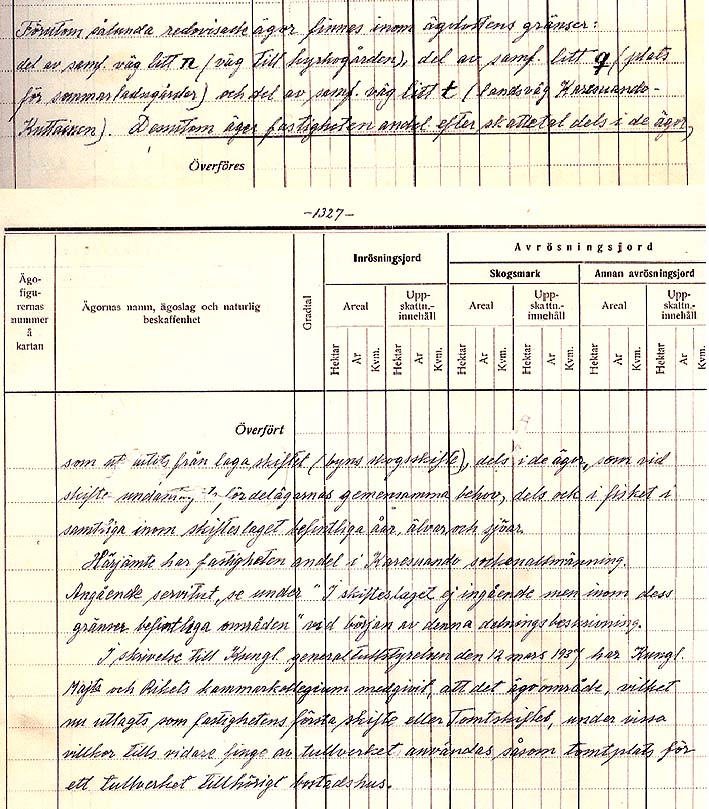 Förutom sålunda redovisade ägor finnas inom ägolottens gränser:
del av samf. väg litt n (väg till kyrkogården), del av samf. litt q (plats
för sommarladugårdar) och del av samf. väg litt t (landsväg Karesuando-
Kuttainen). Dessutom äger fastigheten andel efter skattetal dels i de ägor,
Överföres
-1327-
Ägo-
figu-
rernas
nummer
å
kartan
Ägornas namn, ägoslag och naturlig
beskaffenhet
Gradtal
Inrösningsjord
Avrösningsjord
Skogsmark
Annan avrösningsjord
Areal
Upp-
skattn.-
innehåll
Areal
Upp-
skattn.-
innehåll
Areal
Upp-
skattn.-
innehåll
Hektar Ar Kvm. Hektar Ar Kvm. Hektar Ar Kvm. Hektar Ar Kvm. Hektar Ar Kvm. Hektar Ar Kvm.
Överfört
som från laga skiftet (byns skogsskifte), dels i de ägor, som vid
skifte för delägarnas gemensamma behov, dels ock i fisket i
samtliga inom skifteslaget befintliga åar, älvar och sjöar.
Härjämte har fastigheten andel i Karesuando sockenallmänning.
Angående servitut, se under "I skifteslaget ej ingående men inom dess
gränser befintliga områden" vid början av denna delningsbeskrivning.
I skrivelse till Kungl. generaltullstyrelsen den 12 mars 1937 har Kungl.
Majts och Rikets kammarkollegium medgivit, att det ägoområde, vilket
nu utlagts som fastighetens första skifte eller Tomtskiftet, under vissa
villkor tills vidare finge av tullverket användas såsom tomtplats för
ett tullverket tillhörigt bostadshus.